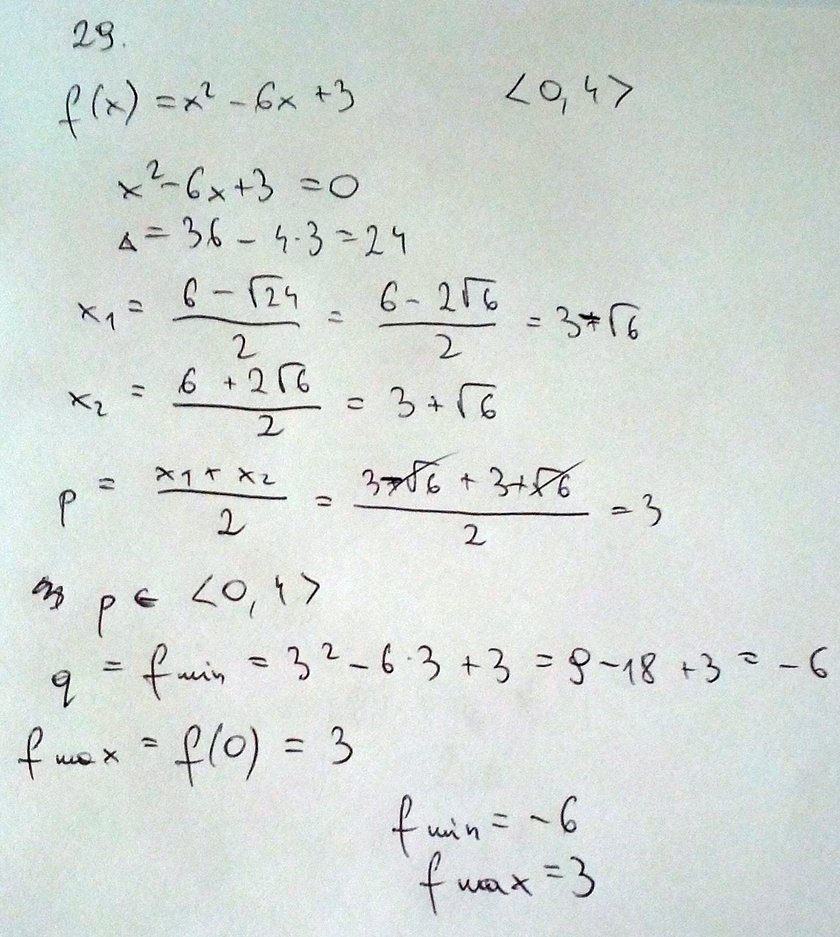 29.
f(x) = x² - 6x + 3 <0,4>
x² - 6x + 3 = 0
Δ = 36 - 4·3 = 24
x₁ = (6 - √24)/2 = (6 - 2√6)/2 = 3 - √6
x₂ = (6 + 2√6)/2 = 3 + √6
p = (x₁ + x₂)/2 = (3 - √6 + 3 + √6)/2 = 3
p ∈ <0,4>
q = f min = 3² - 6·3 + 3 = 9 - 18 + 3 = -6
f max = f(0) = 3
f min = -6
f max = 3